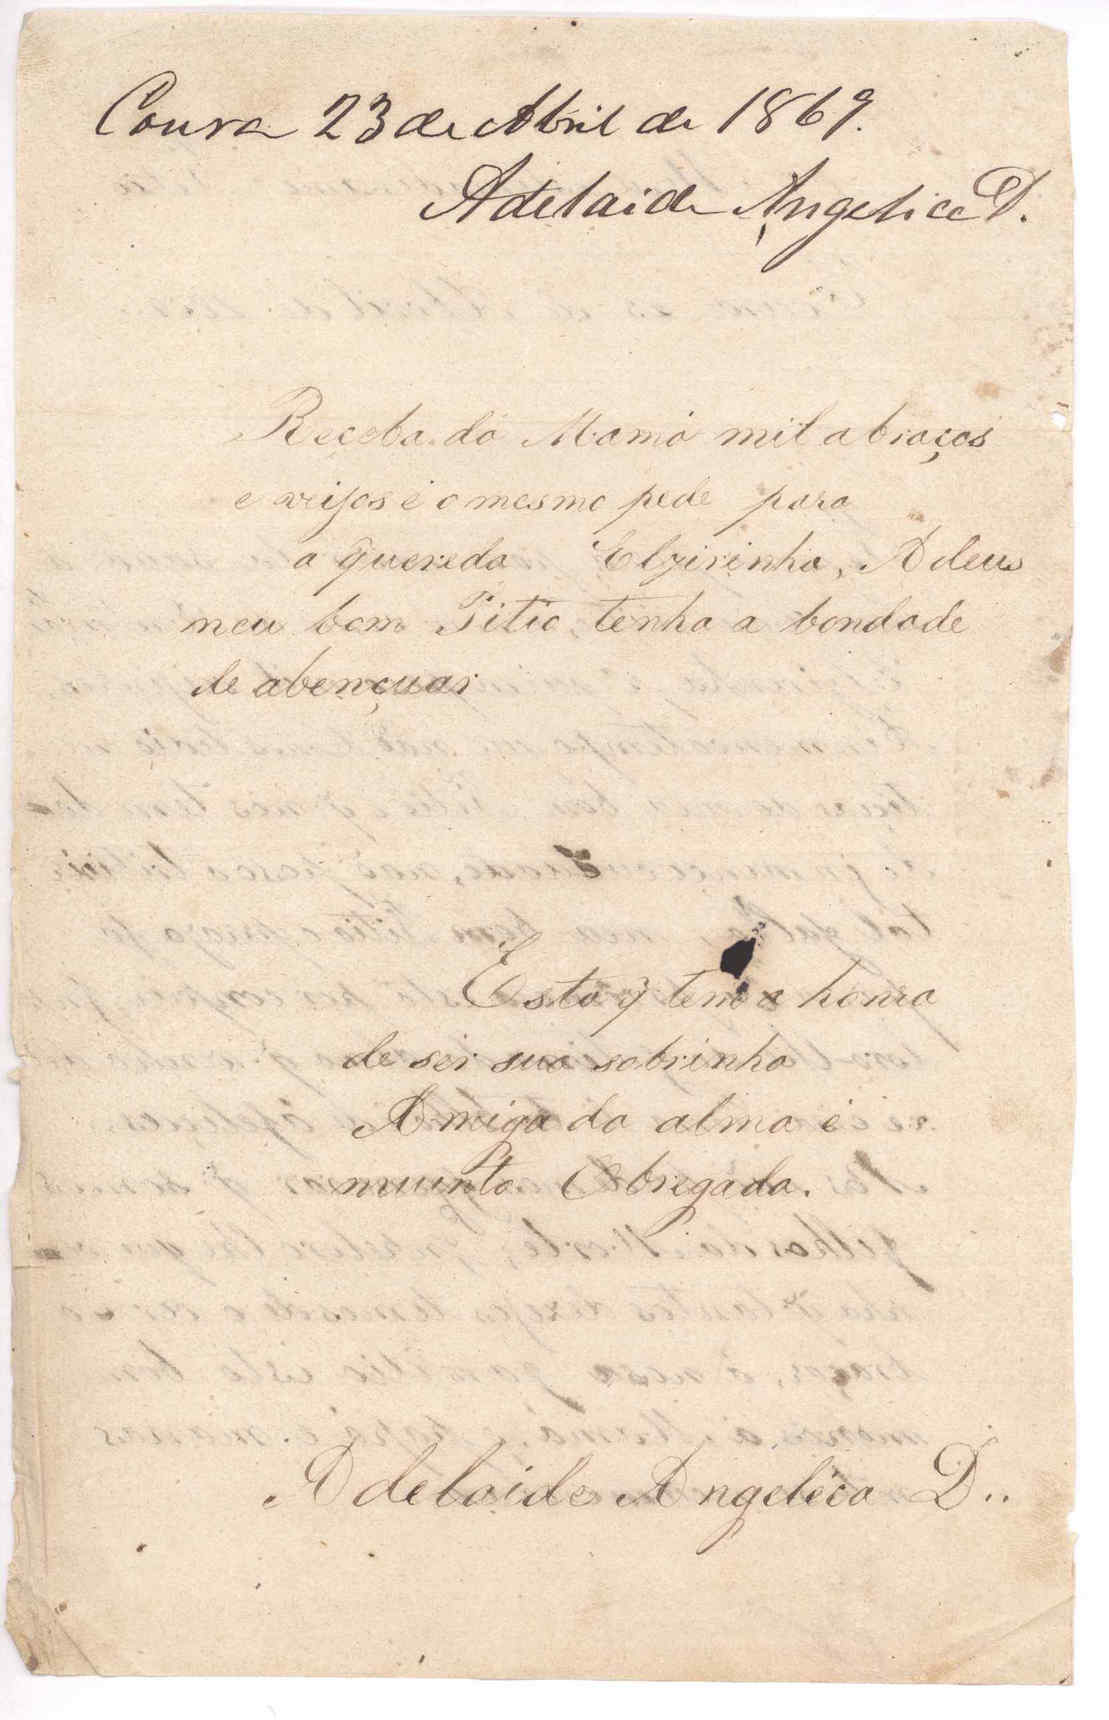 Coura 23 de Abril de 1869.
Adelaide Angelica D.
Receba da Mamá mil abraços
e veijos é o mesmo pede para
a quereda Elzirinha, Adeus
meu bom Titio, tenha a bondade
de abençuar
Esta q tem a honra
de ser sua sobrinha
Amiga da alma é
muinto Obregada.
Adelaide Angelica D..